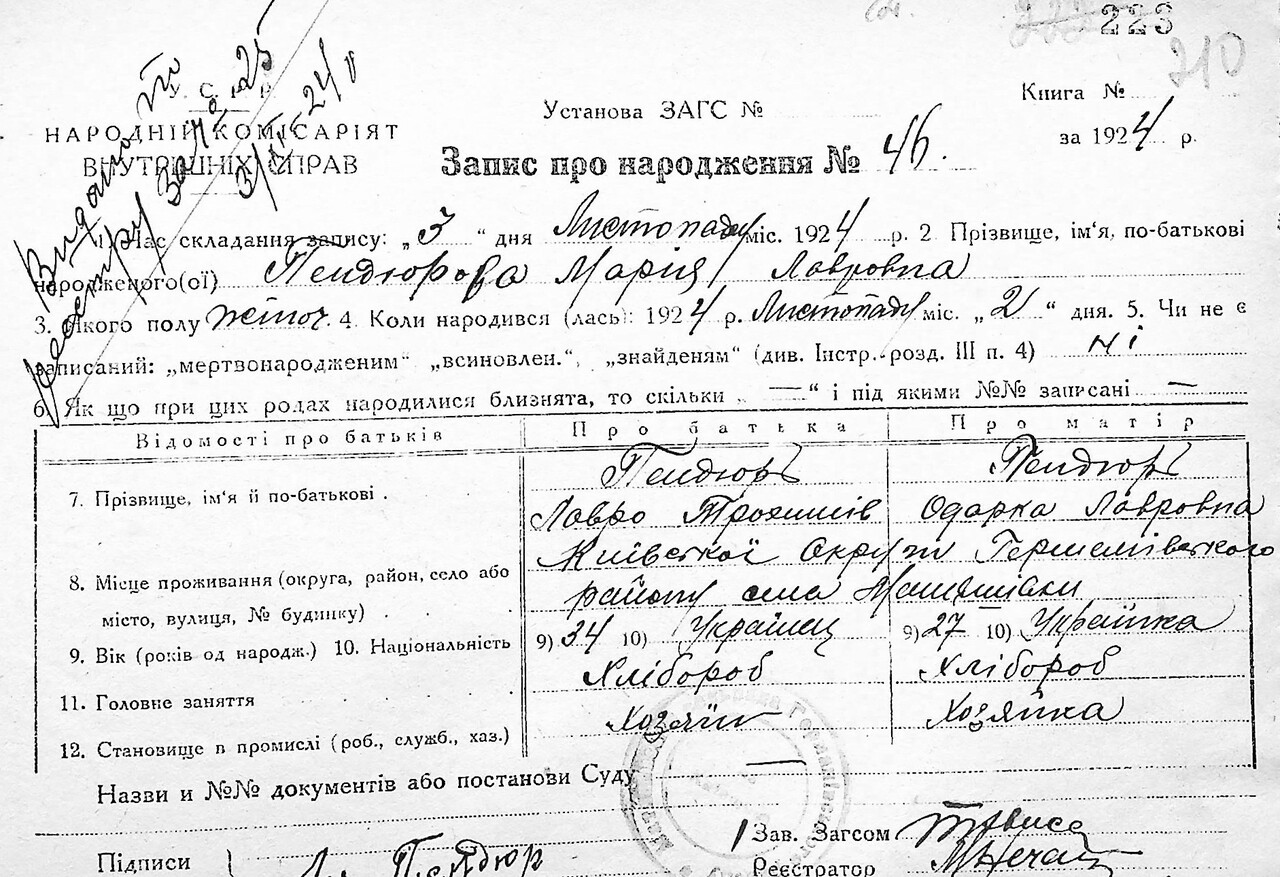 223
210
У. С. Р. Р.
НАРОДНІЙ КОМІСАРІЯТ
ВНУТРІШНІХ СПРАВ
Видано
реєстру За № 2-25
Установа ЗАГС №
Книга №
за 1924 р.
Запис про народження № 46.
1. Час складання запису: „3“ дня Листопаду міс. 1924 р. 2 Прізвище, ім'я, по-батькові
народженого(ої) Пендюрова Марія Лавровна
3. Якого полу жіноч. 4. Коли народився (лась): 1924 р. Листопаду міс. „2“ дня. 5. Чи не є
записаний: „мертвонародженим“ „всиновлен.“, „знайденям“ (див. Інстр. розд. III п. 4) ні
6. Як що при цих родах народилися близнята, то скільки „—“ і під якими №№ записані —
Відомості про батьків Про батька Про матір
7. Прізвище, ім'я й по-батькові . Пендюръ Пендюръ
Лавро Трохимів Одарка Лавровна
8. Місце проживання (округа, район, село або Київської Округи Германівського
місто, вулиця, № будинку) . району села
9. Вік (років од народж.) 10. Національність 9) 34 10) Українец 9) 27 10) Українка
11. Головне заняття Хлібороб Хлібороб
12. Становище в промислі (роб., служб., хаз.) Хозяін Хозяйка
Назви и №№ документів або постанови Суду —
Підписи Пендюр
Зав. Загсом
Реєстратор